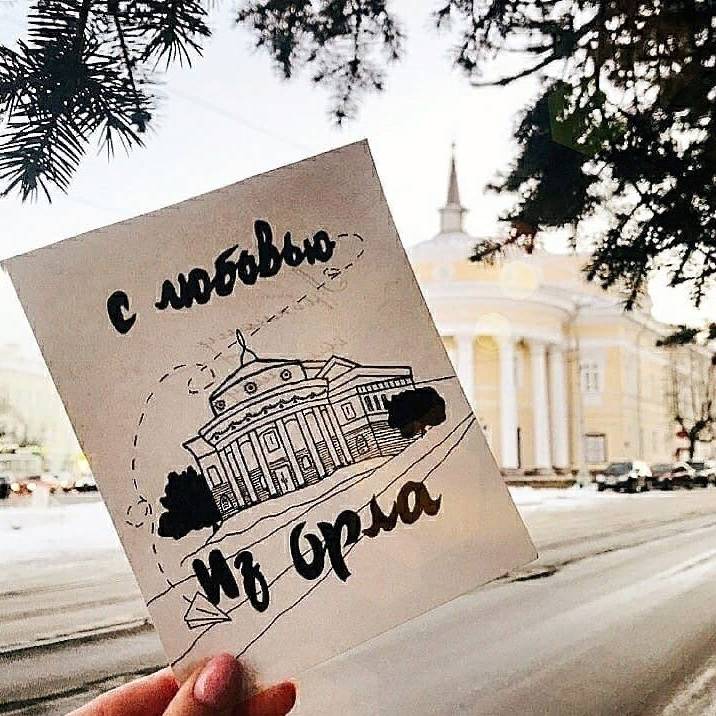 с любовью
Из Орла